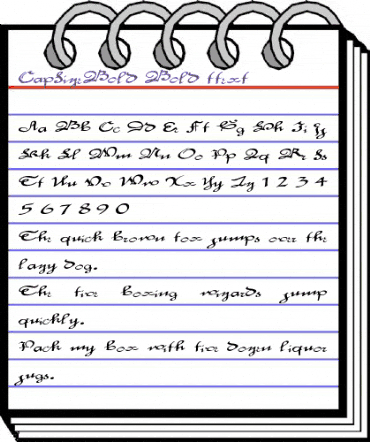 CapSineBold Bold ttext
Aa Bb Cc Dd Ee Ff Gg Hh Ii Jj
Kk Ll Mm Nn Oo Pp Qq Rr Ss
Tt Uu Vv Ww Xx Yy Zz 1 2 3 4
5 6 7 8 9 0
The quick brown fox jumps over the
lazy dog.
The five boxing wizards jump
quickly.
Pack my box with five dozen liquor
jugs.